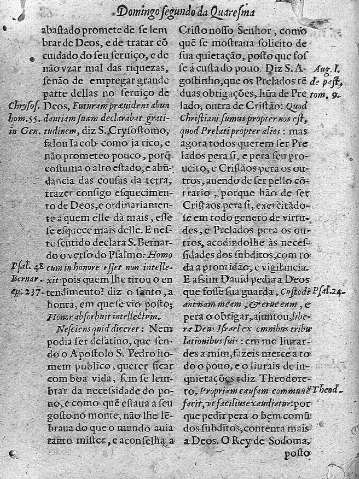 Domingo segundo da Quaresma
abastado promete de se lem
brar de Deos, e de tratar cõ
cuidado do seu seruiço, e de
não vzar mal das riquezas,
senão de empregar grande
parte dellas no seruiço de
Deos, Futuram præsidens abun
dantiam suam declarabat grati-
tudinem, diz S. Crysostomo,
falou Iacob como já rico, e
não prometeo pouco, porq̃
costuma o alto estado, e abũ-
dancia das cousas da terra,
trazer consigo esquecimen-
to de Deos, e ordinariamen-
te a quem elle dá mais, esse
se esquece mais delle. E nes-
te sentido declara S. Bernar-
do o verso do Psalmo: Homo
cum in honore esset non intelle-
xit: pois quem lhe tirou o en
tendimento? diz o santo, a
honra, em que se vio posto;
Honor absorbuit intellectum.
Nesciens quid diceret: Nem
podia ser desatino, que sen-
do o Apostolo S. Pedro ho-
mem publico, querer ficar
com boa vida, sem se lem-
brar da necessidade do po-
uo, e como quẽ estaua a seu
gosto no monte, não lhe lẽ-
braua do que o mundo auia
tanto mister, e aconselha a
Chrysos.
hom. 55.
in Gen.
Psal. 48
Bernar.
ep. 237.
Cristo nosso Senhor, como
quẽ se mostraua solicito de
sua quietação, posto que fos
se á custa do pouo. Diz S. A-
gostinho, que os Prelados tẽ
duas obrigações, hũa de Pre
lado, outra de Cristão: Quod
Christiani sumus propter nos est,
quod Prelati propter alios: mas
agora todos querem ser Pre
lados pera si, e pera seu pro-
ueito, e Cristãos pera os ou
tros, auendo de ser pello cõ-
trario, porque hão de ser
Cristãos pera si, exercitãdo-
se em todo genero de virtu-
des, e Prelados pera os ou-
tros, acodindolhe às neces-
sidades dos subditos, com to
da a promtidão, e vigilancia.
E assim Dauid pedia a Deos
que fosse sua guarda, Custodi
animam meam, & erue eam, e
pera o obrigar, ajuntou, libe-
ra Deus Israel ex omnibus tribu
lationibus suis: em me liurar-
des a mim, fazeis merce a to
do o pouo, e o liurais de in-
quietações; diz Theodore-
to, Propriam causam communẽ
facit, vt facilius exaudiatur: por
que pedir pera o bem comũ
dos subditos, contenta mais
a Deos. O Rey de Sodoma,
posto
Aug. l.
de past.
tom. 9.
Psal. 24.
Theod.